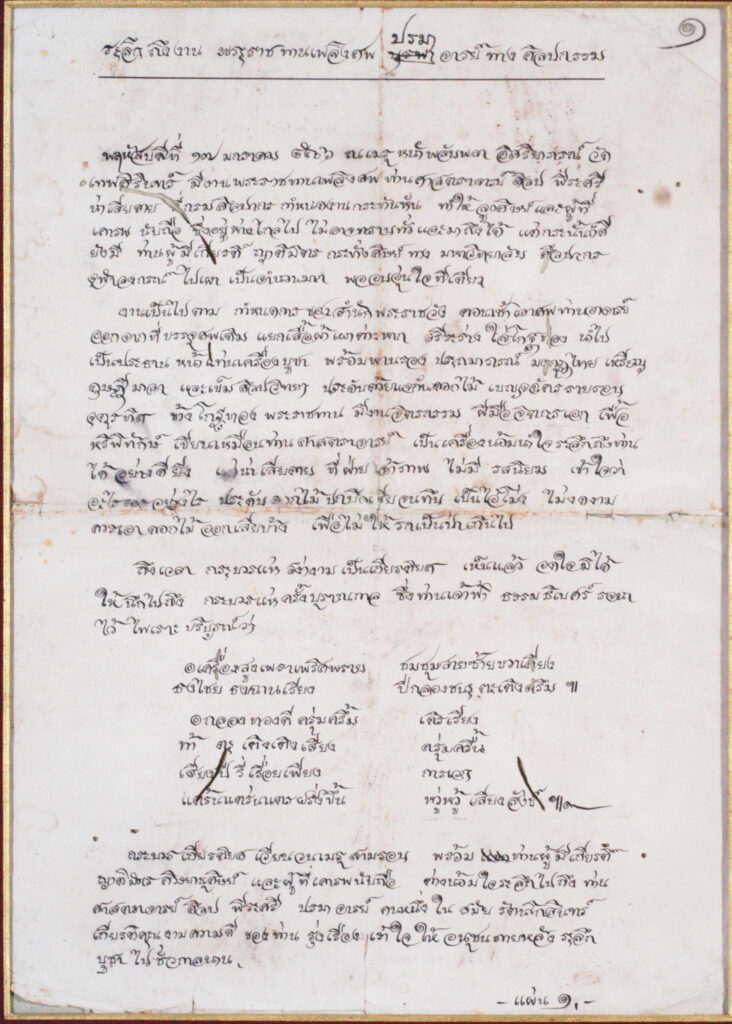 ๑
ปรมา
ระลึกถึงงาน พระราชทานเพลิงศพ บูรพา อาจารย์ทาง ศิลปกรรม
พฤหัสบดีที่ ๑๗ มกราคม ๒๕๐๖ ณเมรุ หน้าพลับพลา อิสริยาภรณ์ วัด
เทพศิรินทร์ มีงานพระราชทานเพลิงศพ ท่านศาสตราจารย์ ศิลป พีระศรี
น่าเสียดาย ที่กรมศิลปากร กำหนดงานกระทันหัน ทำให้ ลูกศิษย์และผู้ที่
เคารพ นับถือ ซึ่งอยู่ห่างไกลไป ไม่อาจทราบทั่ว และมาถึงได้ แต่กระนั้นก็ดี
ยังมี ท่านผู้มีเกียรติ ญาติมิตร กระทั่งศิษย์ ทาง มหาวิทยาลัย ศิลปากร
จุฬาลงกรณ์ ไปเผา เป็นจำนวนมาก พออบอุ่นใจ ทีเดียว
งานเป็นไปตาม กำหนดการ ของสำนัก พระราชวัง ตอนเช้าเอาศพท่านอาจารย์
ออกจากที่บรรจุศพเดิม แยกเสื้อผ้าเผาต่างหาก สรีระร่าง ใส่โกฐทอง นำไป
เป็นประธาน หน้าแท่นเครื่องบูชา พร้อมพานรอง ประถมาภรณ์ มงกุฎไทย เหรียญ
ดุษฎีมาลา และเข็ม ศิลปวิทยา ประดับด้วยแจกันดอกไม้ เบญจฉัตร รายรอบ
จตุรทิศ ข้างโกฐทอง พระราชทาน มีงานจิตรกรรม ฝีมือ จิตรกรเอก เฟื้อ
หริพิทักษ์ เขียนเหมือนท่านศาสตราจารย์ เป็นเครื่องน้อมนำใจระลึกถึงท่าน
ได้ อย่างดียิ่ง แต่น่าเสียดาย ที่ฝ่าย เจ้าภาพ ไม่มี รสนิยม เข้าใจว่า
อะไร อย่างไร ประดับ ดอกไม้ เป็น ไม่งดงาม
ควรเอา ดอกไม้ ออกเสียบ้าง เพื่อไม่ ให้ รกเป็นป่า เกินไป
ถึงเวลา กระบวนแห่ สง่างาม เป็นเกียรติยศ เห็นแล้ว อดใจ มิได้
ให้นึกไปถึง กระบวนแห่ครั้งบูราณกาล ซึ่งท่านเจ้าฟ้า ธรรมธิเบศร์ รจนา
ไว้ ไพเราะ บริบูรณ์ว่า
๏เครื่องสูงเพราเพริศพราย ชมชุมสายซ้ายขวาเคียง
ธงไชย ธงฉานเรียง ปี่กลองชนะ ตะเติงครึม ฯ
๏กลองทองตี ครุ่มครึ้ม เดิรเรียง
ท้า ตะ เติงเติง เสียง ครุ่มครื้น
เสียงปี่ รี่เรื่อยเพียง การเวก
แตร้นแตร่นแตรฝรั่งขึ้น หวู่หวู้ เสียงสังข์ ฯ
กระบวน เกียรติยศ เวียนวนเมรุ สามรอบ พร้อม ท่านผู้ มีเกียรติ
ญาติมิตร ศิษยานุศิษย์ และผู้ที่เคารพนับถือ ต่างน้อมใจระลึกไปถึง ท่าน
ศาสตราจารย์ ศิลป พีระศรี ปรมาจารย์ คนหนึ่ง ใน สมัย รัตนโกสินทร์
เกียรติคุณงามความดี ของท่าน รุ่งเรือง เข้าใจ ให้ อนุชนภายหลัง ระลึก
บูชา ไปชั่วกาลนาน.
- แผ่น ๑. -